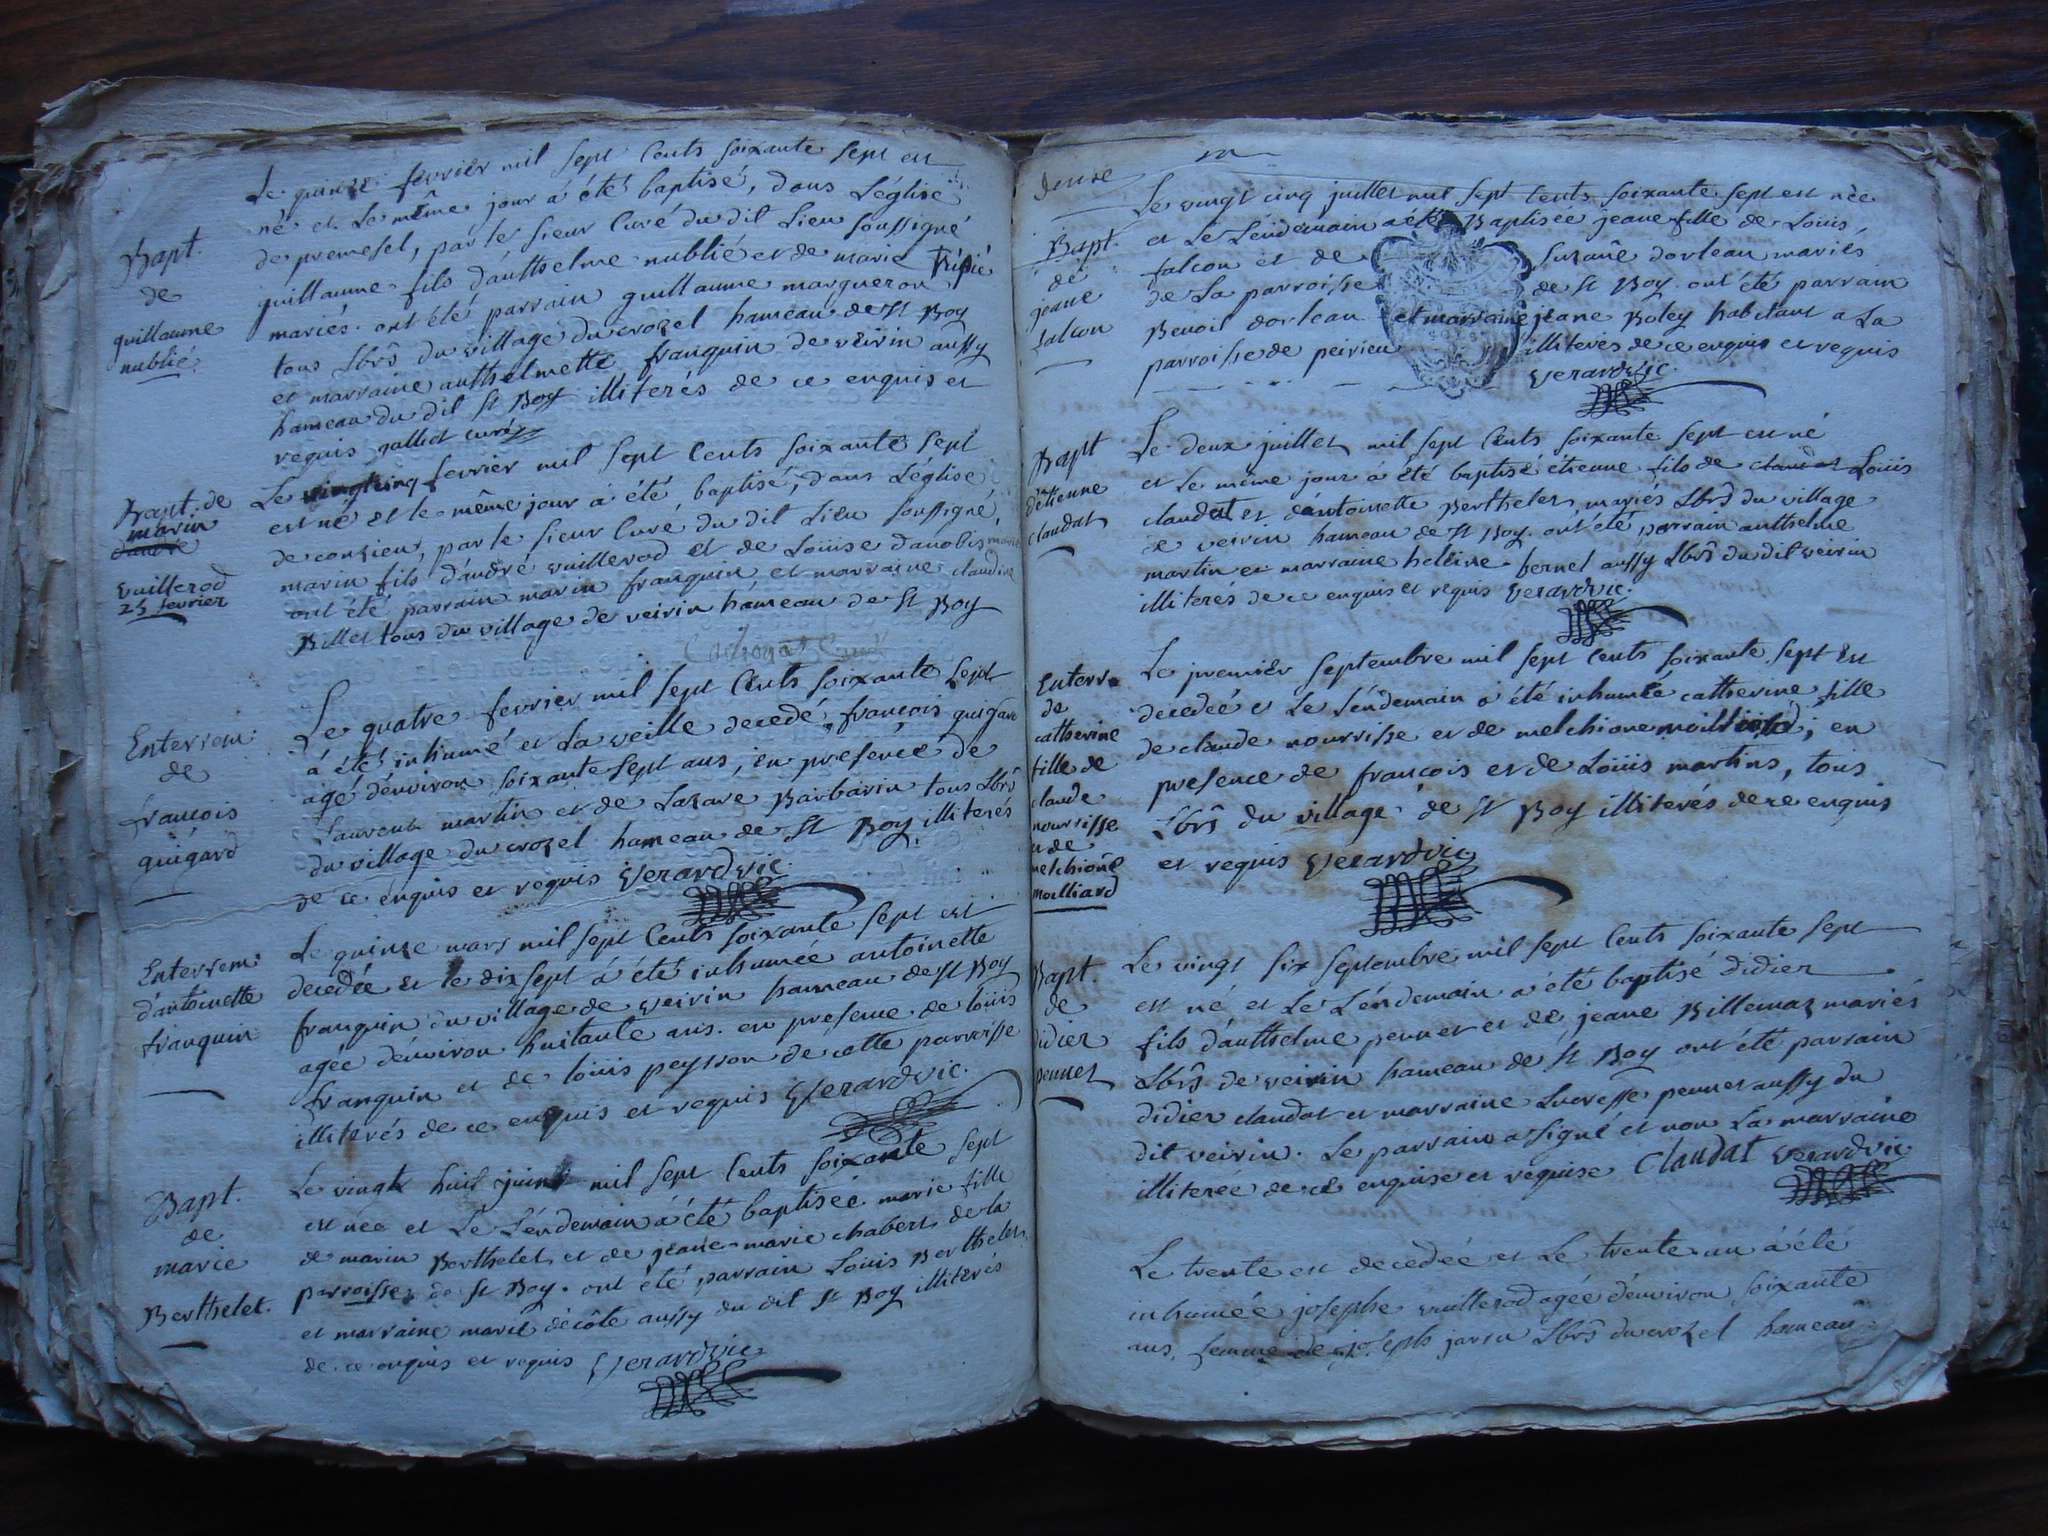 Le quinze fevrier mil sept Cents soixante sept est
né et Le même jour à été baptisé, dans L'église
de premesel, par le sieur Curé du dit Lieu soussigné
guillaume fils d'anthelme nublié et de marie
mariés. ont été parrain guillaume marqueron
tous Lbrs du village du crozel hameau de St Boy
et marraine anthelmette franquin de veirin aussy
hameau du dit St Boy illiterés de ce enquis et
requis galliet curé
Bapt.
de
guillaume
nublié
Le vingt cinq fevrier mil sept Cents soixante sept
est né et le même jour à été baptisé, dans L'église
de conzieu, par le sieur Curé du dit Lieu soussigné,
marin fils d'andré vuillerod et de Loüise danobis
ont été parrain marin franquin et marraine claudine
Billet tous du village de veirin hameau de St Boy
Bapt. de
marin
vuillerod
25 fevrier
Le quatre fevrier mil sept Cents soixante Sept
à été inhumé et La veille decedé, françois guigard
agé d'environ soixante sept ans, en presence de
Laurent martin et de Lazare Barbarin tous Lbrs
du village du crozel hameau de St Boy illiterés
de ce enquis et requis Verardvic.
Enterrem:
de
françois
guigard
Le quinze mars mil sept Cents soixante sept est
decedée et le dix sept à été inhumée antoinette
franquin du village de veirin hameau de St Boy
agée d'environ huitante ans. en presence de loüis
franquin et de loüis peysson de cette parroisse
illiterés de ce enquis et requis Verardvic.
Enterrem:
d'antoinette
franquin
Le vingt huit juin mil sept Cents soixante sept
est née et Le Lendemain à été baptisée marie fille
de marin Berthelet et de jeane marie chabert de la
parroisse de St Boy. ont été parrain Loüis Berthelet
et marraine marie décôte aussy du dit St Boy illiterés
de ce enquis et requis Verardvic
Bapt.
de
marie
Berthelet.
Le vingt cinq juillet mil sept Cents soixante sept est née
et Le Lendemain a été Baptisée jeane fille de Loüis
falcon et de Suzane dorleau mariés
de La parroisse de St Boy. ont été parrain
Benoit dorleau et marraine jeane Boley habitant a La
parroisse de peirieu illiterés de ce enquis et requis
Verardvic.
Bapt.
de
jeane
falcon
Le deux juillet mil sept Cents soixante sept est né
et Le même jour à été baptisé étienne fils de Loüis
claudat et d'antoinette Berthelet mariés Lbrs du village
de veirin hameau de St Boy. ont été parrain anthelme
martin et marraine heleine fernet aussy Lbrs du dit veirin
illiterés de ce enquis et requis Verardvic.
Bapt
d'étienne
claudat
Le premier septembre mil sept Cents soixante sept Est
decedée et Le Lendemain à été inhumée catherine fille
de claude nourrisse et de melchione moilliard; en
presence de françois et de Loüis martins, tous
Lbrs du village de St Boy illiterés de ce enquis
et requis Verardvic
Enterre
de
catherine
fille de
claude
nourrisse
et de
melchione
moilliard
Le vingt six septembre mil sept Cents soixante sept
est né, et Le Lendemain à été baptisé didier
fils d'anthelme pennet et de jeane Billemaz mariés
Lbrs de veirin hameau de St Boy ont été parrain
didier claudat et marraine Lucresse pennet aussy du
dit veirin. Le parrain a signé et non La marraine
illiterée de ce enquise et requise Claudat Verardvic
Bapt.
de
didier
pennet
Le trente est decedée et Le trente un à été
inhumée josephe vuillerod agée d'environ soixante
ans, femme de joseph Lbrs du crozel hameau